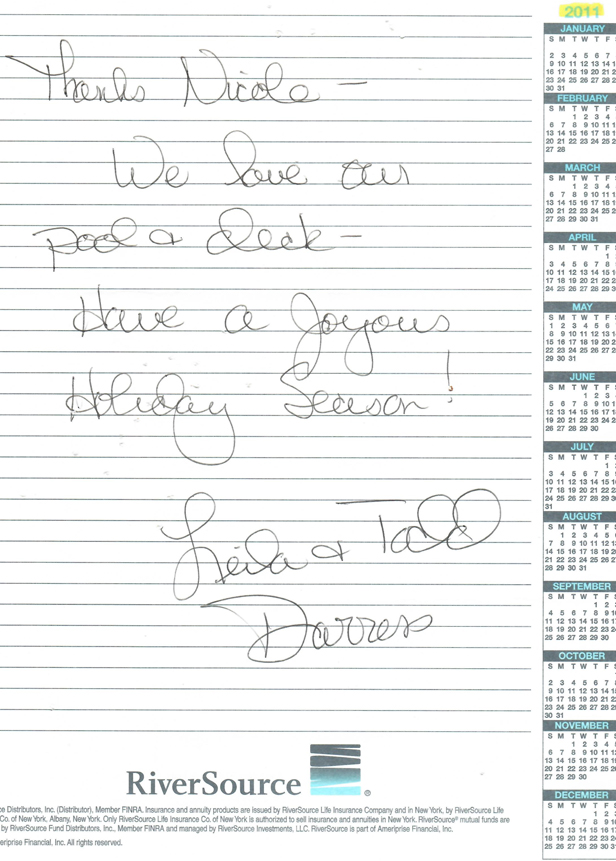 Thanks Nicole -
We love our
pool & deck -
Have a Joyous
Holiday Season!
Leila & Todd
Darress
2011
JANUARY
S M T W T F
2 3 4 5 6 7
9 10 11 12 13 14
16 17 18 19 20 21
23 24 25 26 27 28
30 31
FEBRUARY
S M T W T F
1 2 3 4
6 7 8 9 10 11
13 14 15 16 17 18
20 21 22 23 24 25
27 28
MARCH
S M T W T F
1 2 3 4
6 7 8 9 10 11
13 14 15 16 17 18
20 21 22 23 24 25
27 28 29 30 31
APRIL
S M T W T F
1
3 4 5 6 7 8
10 11 12 13 14 15
17 18 19 20 21 22
24 25 26 27 28 29
MAY
S M T W T F
1 2 3 4 5 6
8 9 10 11 12 13
15 16 17 18 19 20
22 23 24 25 26 27
29 30 31
JUNE
S M T W T F
1 2 3
5 6 7 8 9 10
12 13 14 15 16 17
19 20 21 22 23 24
26 27 28 29 30
JULY
S M T W T F
1
3 4 5 6 7 8
10 11 12 13 14 15
17 18 19 20 21 22
24 25 26 27 28 29
31
AUGUST
S M T W T F
1 2 3 4 5
7 8 9 10 11 12
14 15 16 17 18 19
21 22 23 24 25 26
28 29 30 31
SEPTEMBER
S M T W T F
1 2
4 5 6 7 8 9
11 12 13 14 15 16
18 19 20 21 22 23
25 26 27 28 29 30
OCTOBER
S M T W T F
2 3 4 5 6 7
9 10 11 12 13 14
16 17 18 19 20 21
23 24 25 26 27 28
30 31
NOVEMBER
S M T W T F
1 2 3 4
6 7 8 9 10 11
13 14 15 16 17 18
20 21 22 23 24 25
27 28 29 30
DECEMBER
S M T W T F
1 2
4 5 6 7 8 9
11 12 13 14 15 16
18 19 20 21 22 23
25 26 27 28 29 30
RiverSource ®
Distributors, Inc. (Distributor), Member FINRA. Insurance and annuity products are issued by RiverSource Life Insurance Company and in New York, by RiverSource Life
Co. of New York, Albany, New York. Only RiverSource Life Insurance Co. of New York is authorized to sell insurance and annuities in New York. RiverSource® mutual funds are
by RiverSource Fund Distributors, Inc., Member FINRA and managed by RiverSource Investments, LLC. RiverSource is part of Ameriprise Financial, Inc.
Financial, Inc. All rights reserved.